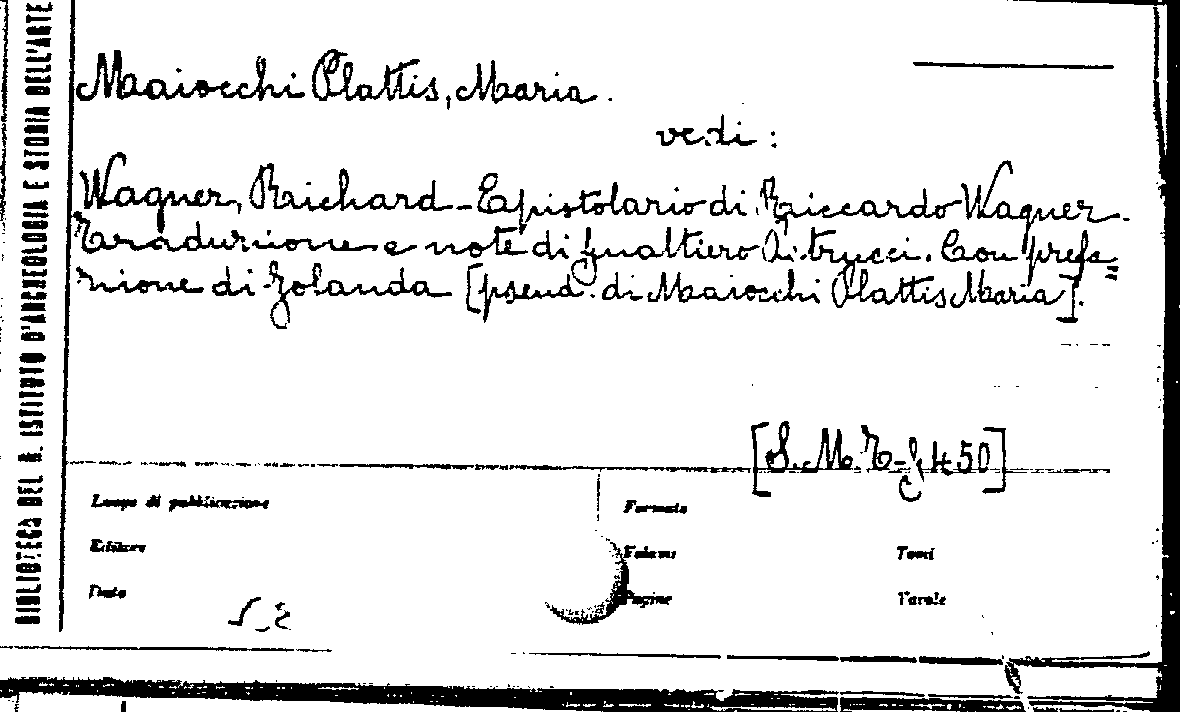 BIBLIOTECA DEL R. ISTITUTO D'ARCHEOLOGIA E STORIA DELL'ARTE
Maiocchi Plattis, Maria.
vedi:
Wagner, Richard - Epistolario di Riccardo Wagner.
Traduzione e note di Gualtiero Petrucci. Con prefa=
zione di Jolanda [pseud. di Maiocchi Plattis Maria].
[S.M.Z-J,450]
Luogo di pubblicazione
Formato
Editore
Volume
Tomi
Data
Pagine
Tavole